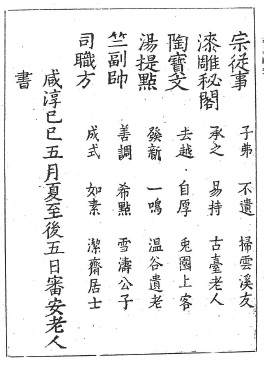 宗從事 子弗 不遺 掃雲溪友
漆雕秘閣 承之 易持 古臺老人
陶寶文 去越 自厚 兎園上客
湯提點 發新 一鳴 温谷遺老
竺副帥 善調 希點 雪濤公子
司職方 成式 如素 潔齋居士
咸淳己巳五月夏至後五日審安老人
書